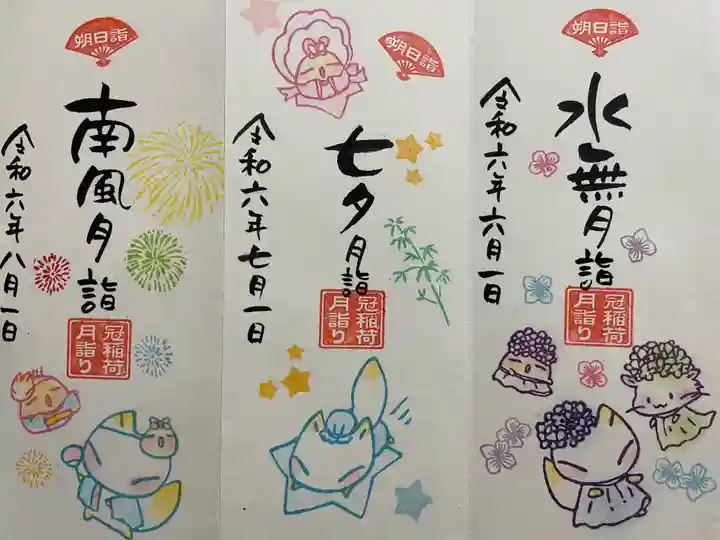 朔日詣
水無月詣
令和六年六月一日
冠稲荷
月詣り
朔日詣
七夕月詣
令和六年七月一日
冠稲荷
月詣り
朔日詣
南風月詣
令和六年八月一日
冠稲荷
月詣り